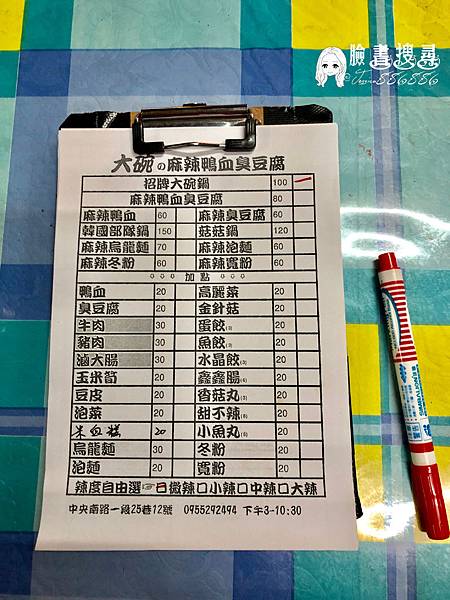 臉書搜尋
@Jessica886886
大碗の麻辣鴨血臭豆腐
招牌大碗鍋 100
麻辣鴨血臭豆腐 80
麻辣鴨血 60 麻辣臭豆腐 60
韓國部隊鍋 150 菇菇鍋 120
麻辣烏龍麵 70 麻辣泡麵 60
麻辣冬粉 60 麻辣寬粉 60
。。。加點。。。
鴨血 20 高麗菜 20
臭豆腐 20 金針菇 20
牛肉 30 蛋餃(3) 20
豬肉 30 魚餃(3) 20
滷大腸 30 水晶餃(3) 20
玉米筍 20 鑫鑫腸(6) 20
豆皮 20 香菇丸(3) 20
泡菜 20 甜不辣(8) 20
米血糕 20 小魚丸(6) 20
烏龍麵 30 冬粉 20
泡麵 20 寬粉 20
辣度自由選☞口微辣口小辣口中辣口大辣
中央南路一段25巷12號 0955292494 下午3-10:30